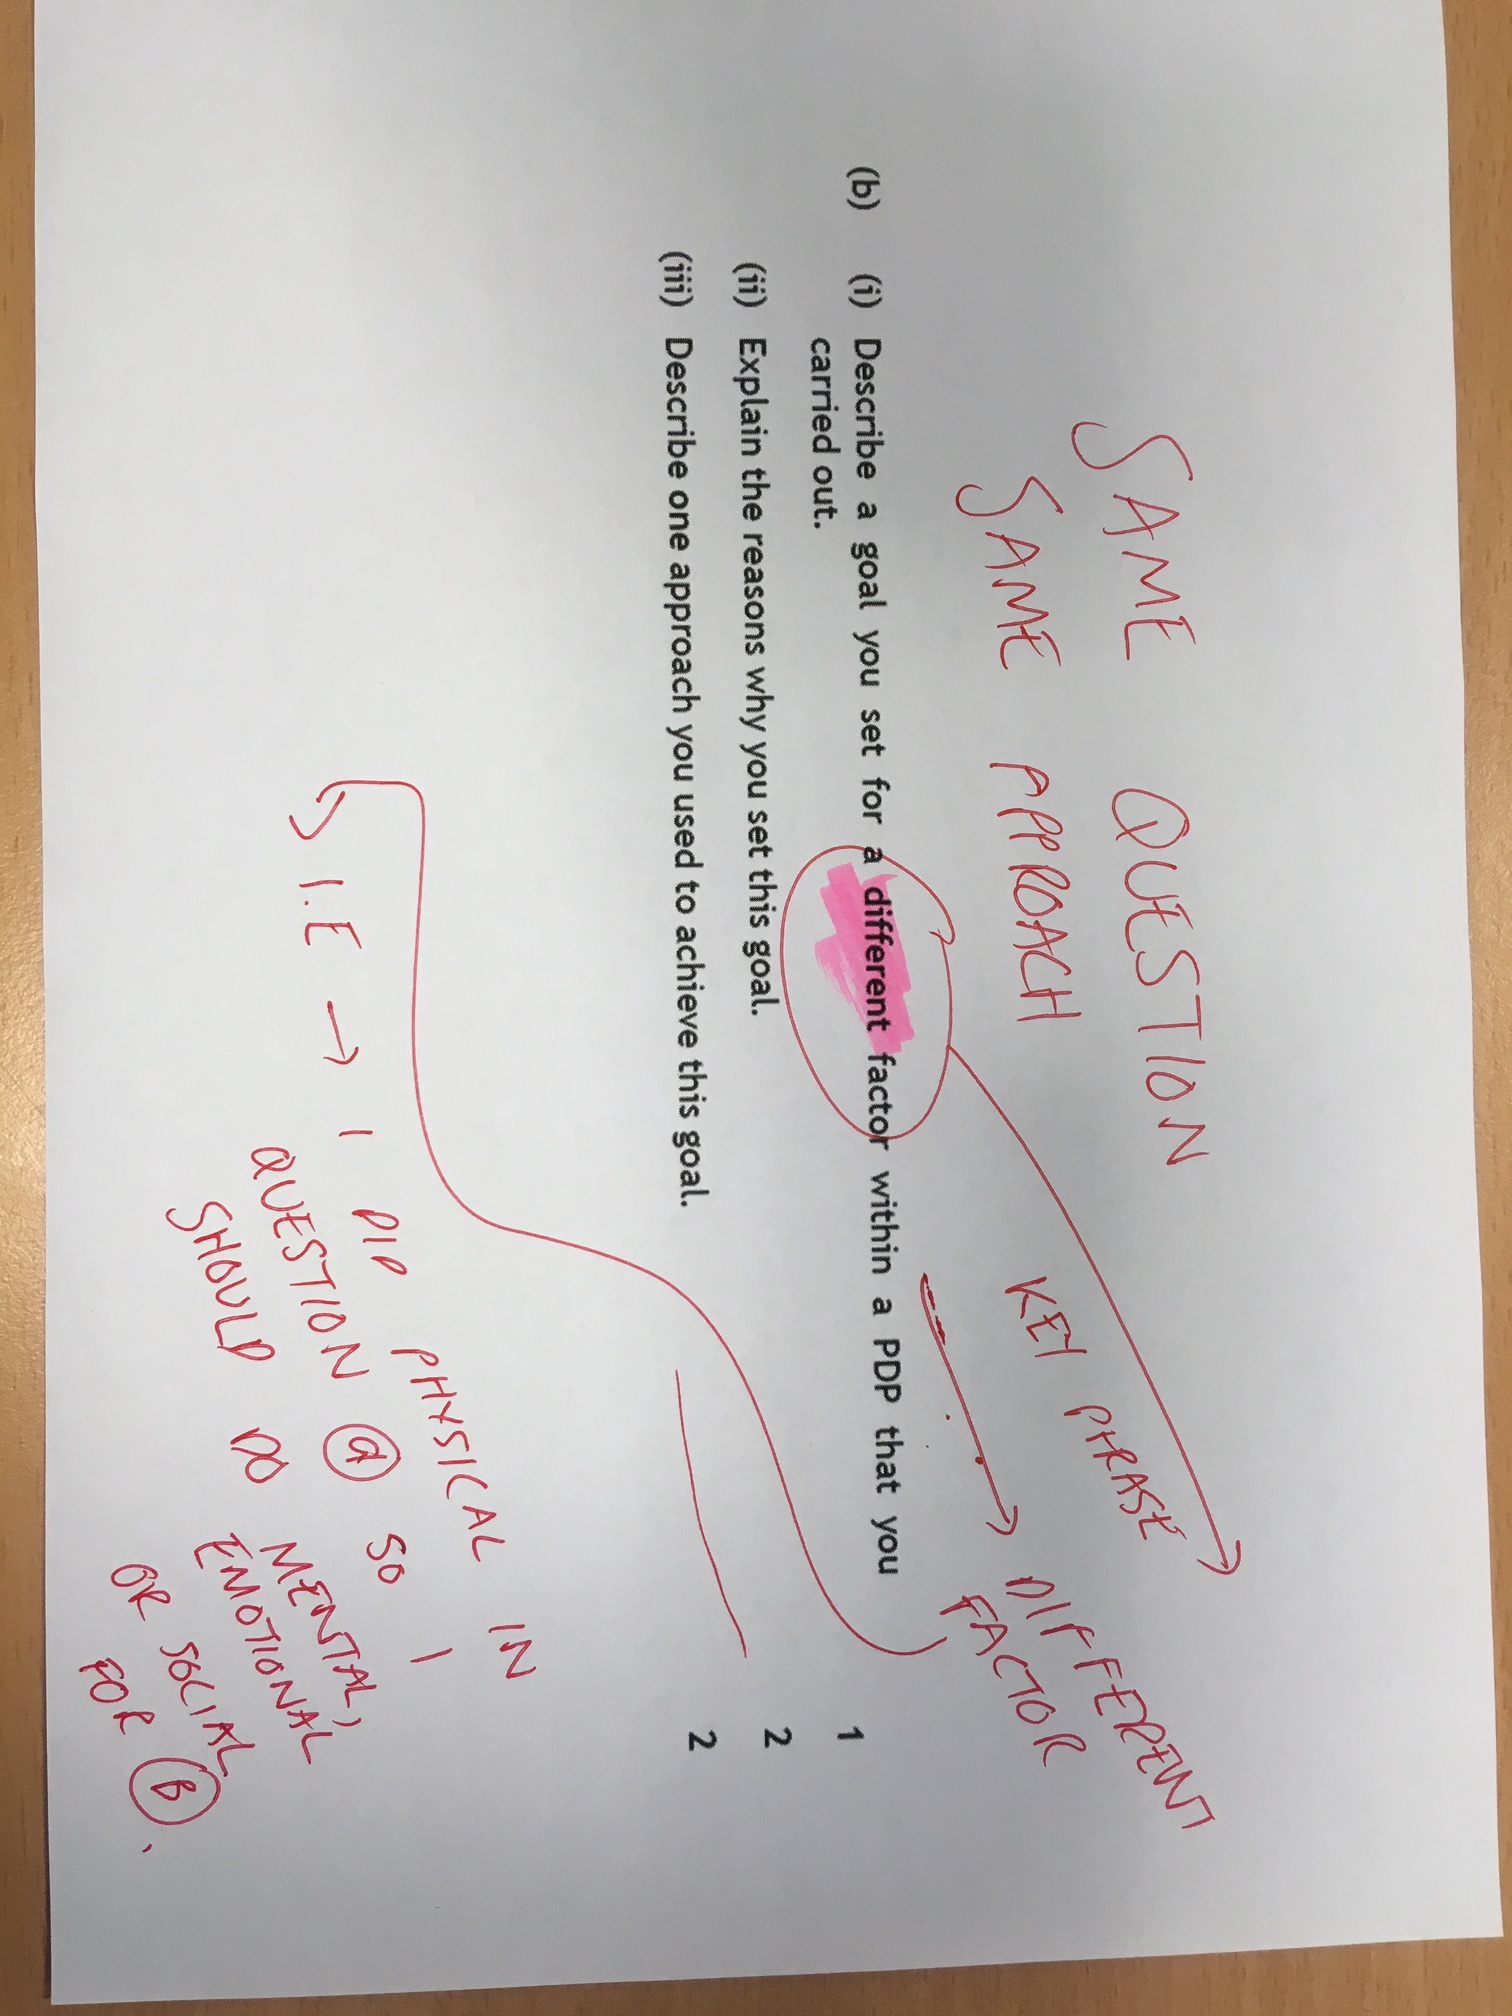 SAME QUESTION
SAME APPROACH
KEY PHRASE
DIFFERENT
FACTOR
(b) (i) Describe a goal you set for a different factor within a PDP that you
carried out. 1
(ii) Explain the reasons why you set this goal. 2
(iii) Describe one approach you used to achieve this goal. 2
I.E → I DID PHYSICAL IN
QUESTION (a) SO I
SHOULD DO MENTAL,
EMOTIONAL
OR SOCIAL
FOR (B).